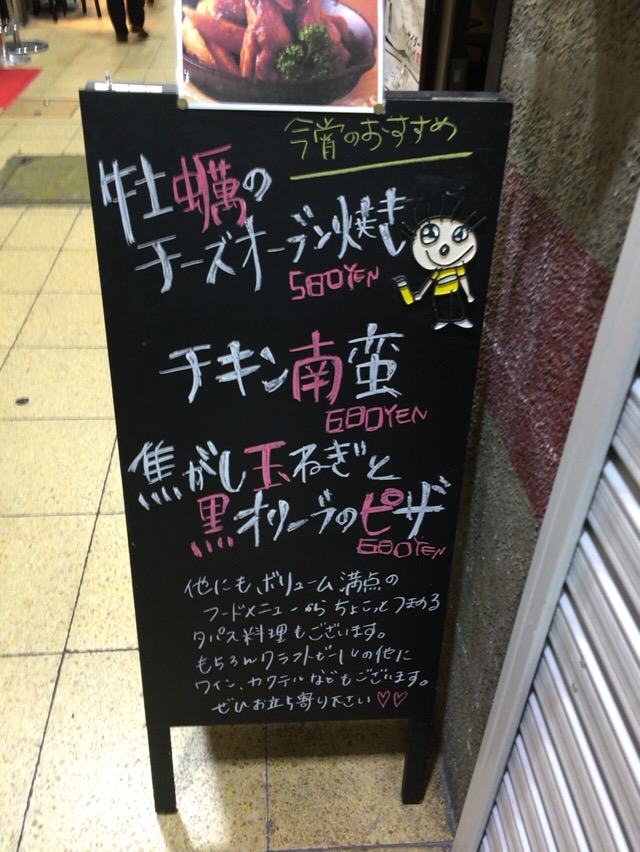 今宵のおすすめ
牡蠣の
チーズオーブン焼き
580YEN
チキン南蛮
680YEN
焦がし玉ねぎと
黒オリーブのピザ
680YEN
他にも、ボリューム満点の
フードメニューからちょこっとつまめる
タパス料理もございます。
もちろんクラフトビールの他に
ワイン、カクテルなどもございます。
ぜひお立ち寄り下さい♡♡